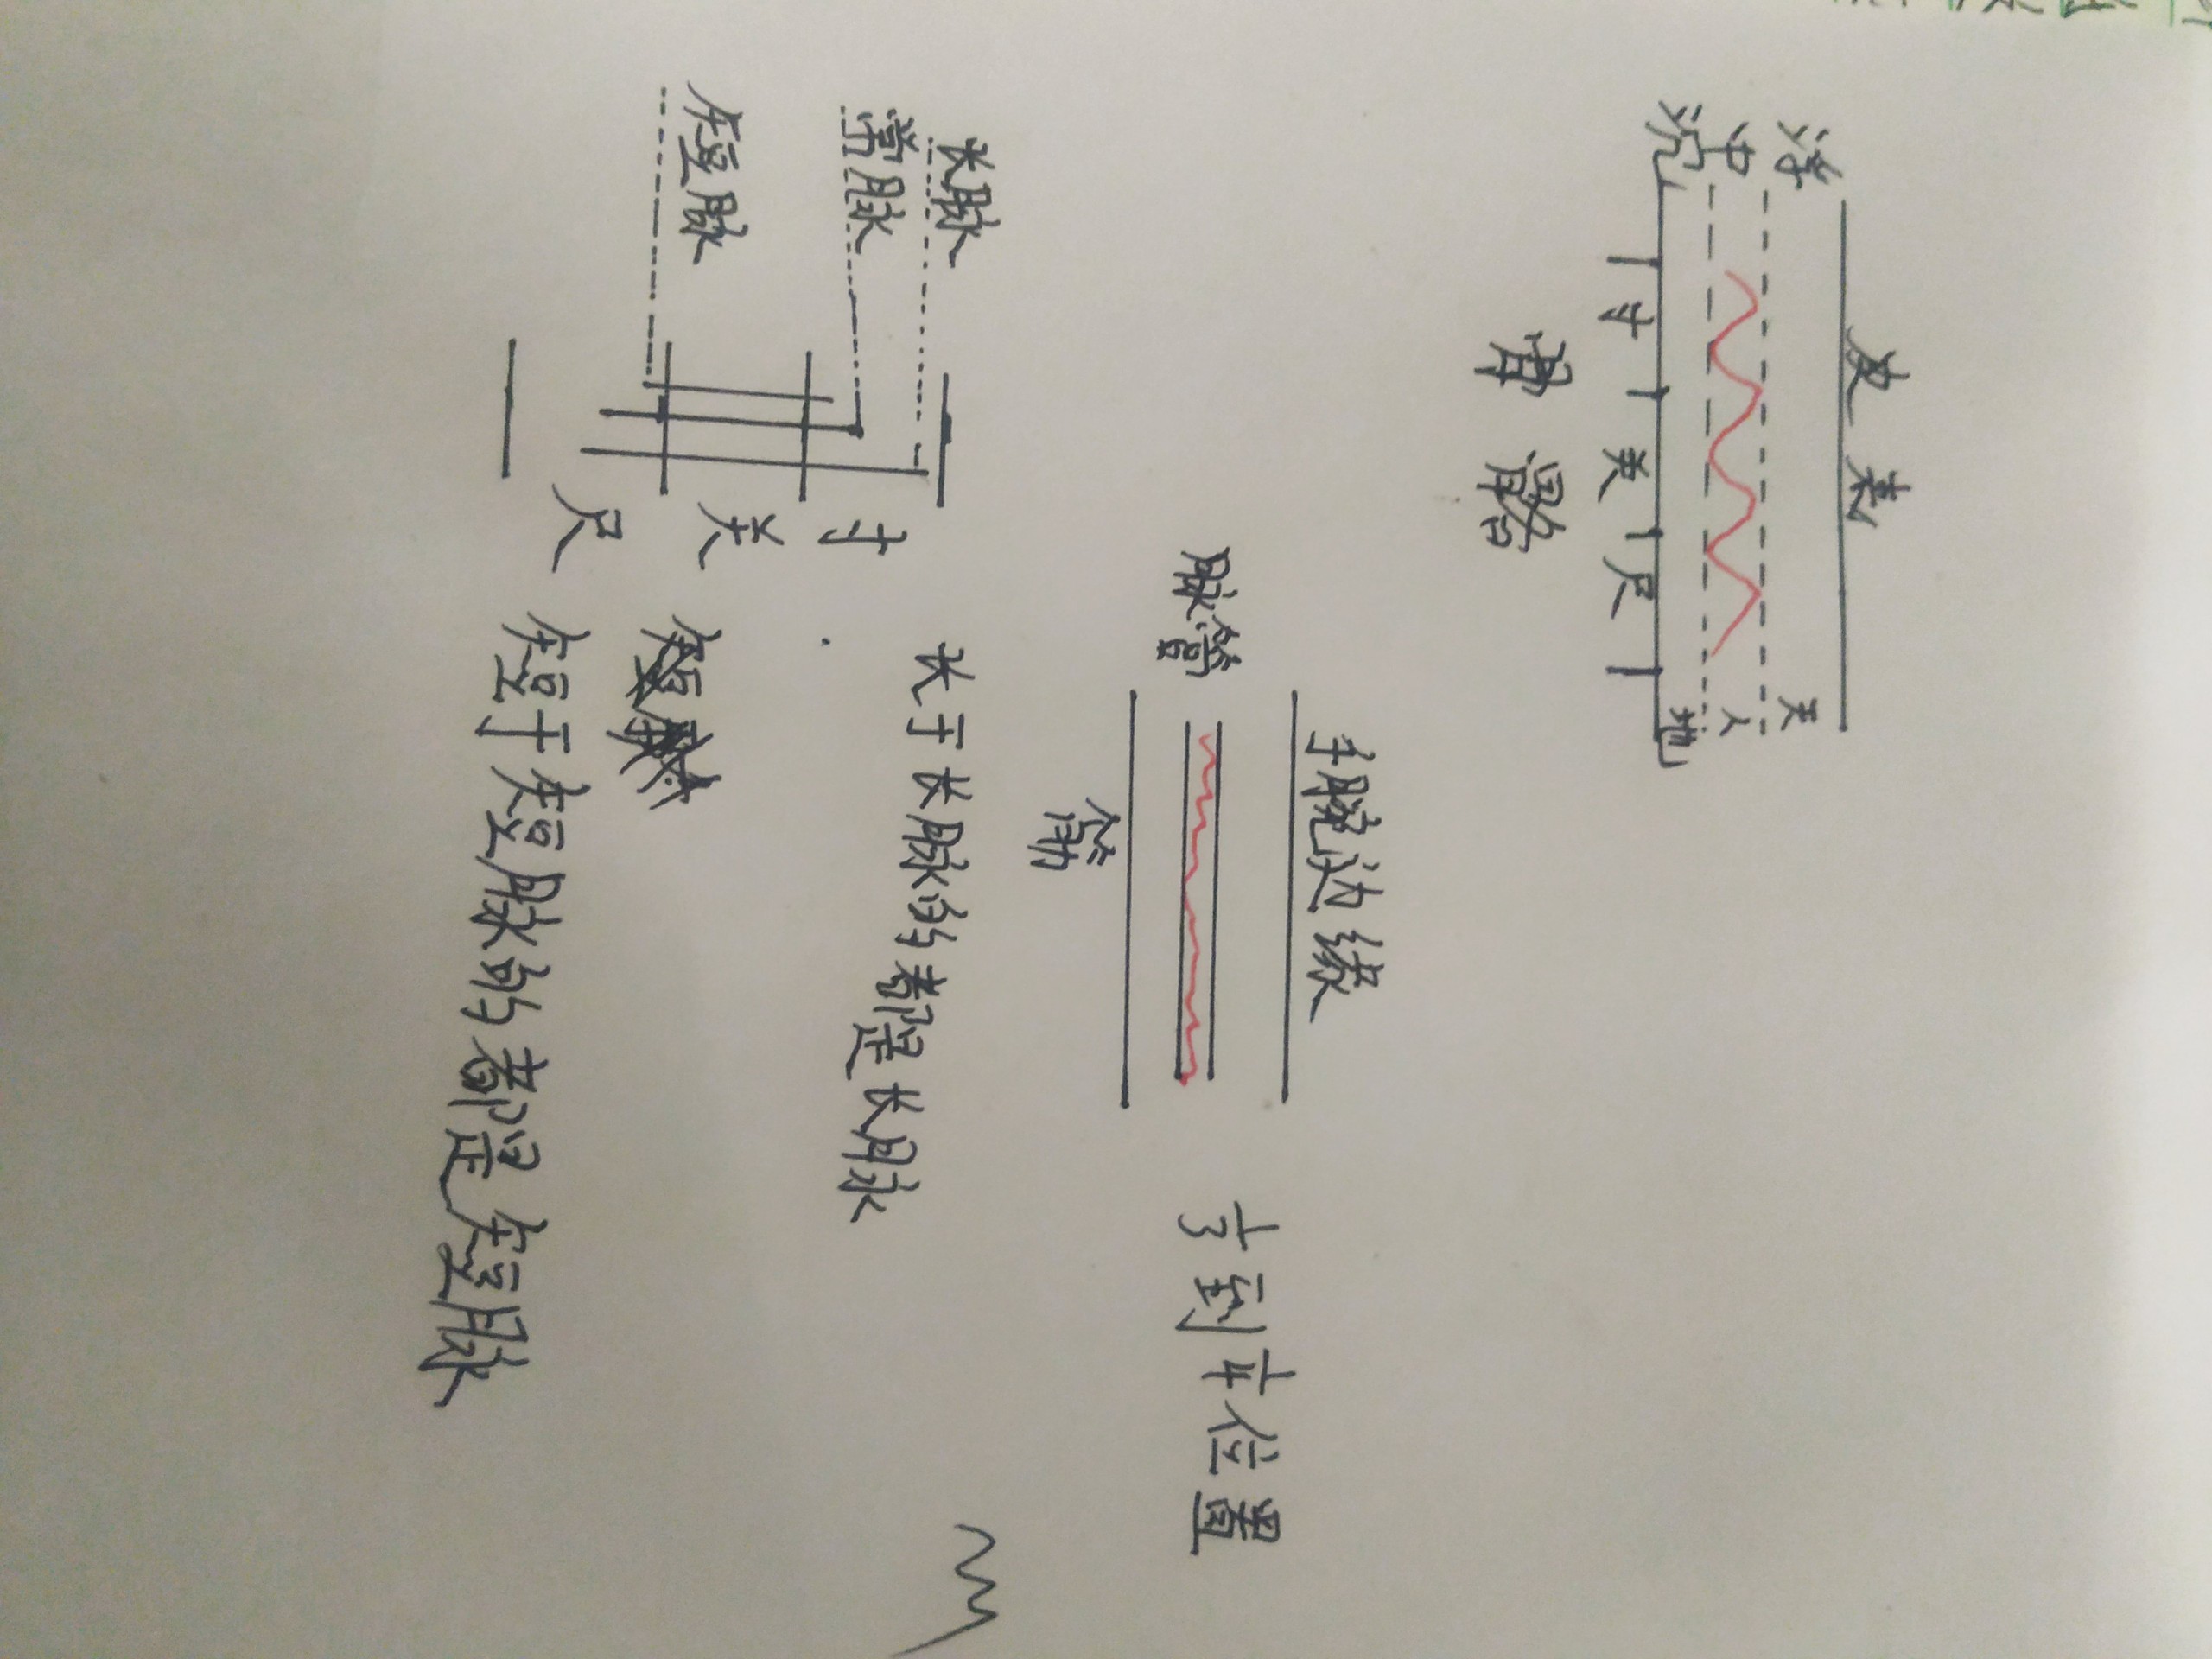 皮表
浮 天
中 人
沉 地
寸 关 尺
骨骼
手腕边缘
脉管
到 位置
筋
长脉
常脉
短脉
寸
关
尺
长于长脉的都是长脉
短于短脉的都是短脉